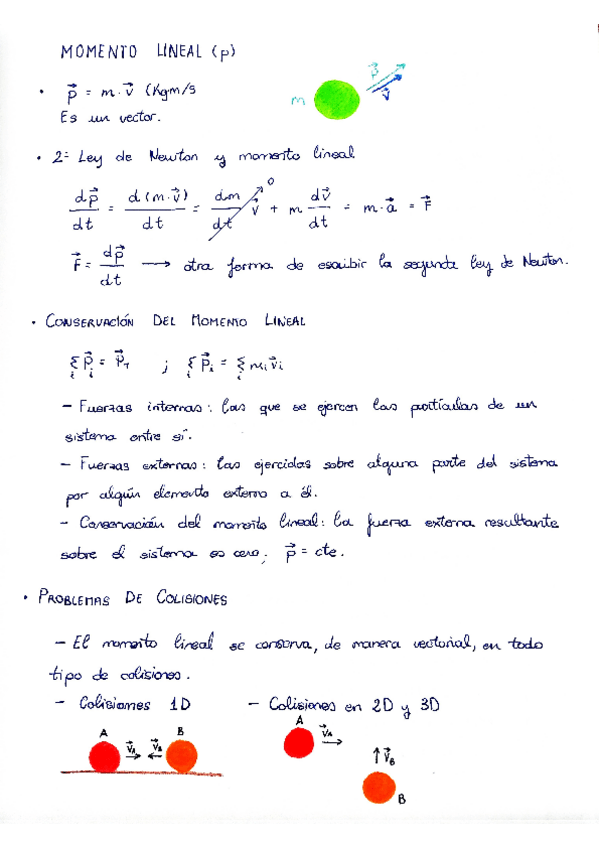 MOMENTO LINEAL (p)
• p⃗ = m · v⃗ (Kgm/s
Es un vector.
m p⃗ v⃗
• 2ª Ley de Newton y momento lineal
dp⃗/dt = d(m·v⃗)/dt = dm/dt v⃗ + m dv⃗/dt = m·a⃗ = F⃗
0
F⃗ = dp⃗/dt → otra forma de escribir la segunda ley de Newton.
• CONSERVACIÓN DEL MOMENTO LINEAL
Σᵢ p⃗ᵢ = p⃗T ; Σᵢ p⃗ᵢ = Σᵢ mᵢv⃗ᵢ
– Fuerzas internas: las que se ejercen las partículas de un
sistema entre sí.
– Fuerzas externas: las ejercidas sobre alguna parte del sistema
por algún elemento externo a él.
– Conservación del momento lineal: la fuerza externa resultante
sobre el sistema es cero; p⃗ = cte.
• PROBLEMAS DE COLISIONES
– El momento lineal se conserva, de manera vectorial, en todo
tipo de colisiones.
– Colisiones 1D – Colisiones en 2D y 3D
A v⃗A v⃗B B
A v⃗A
v⃗B
B